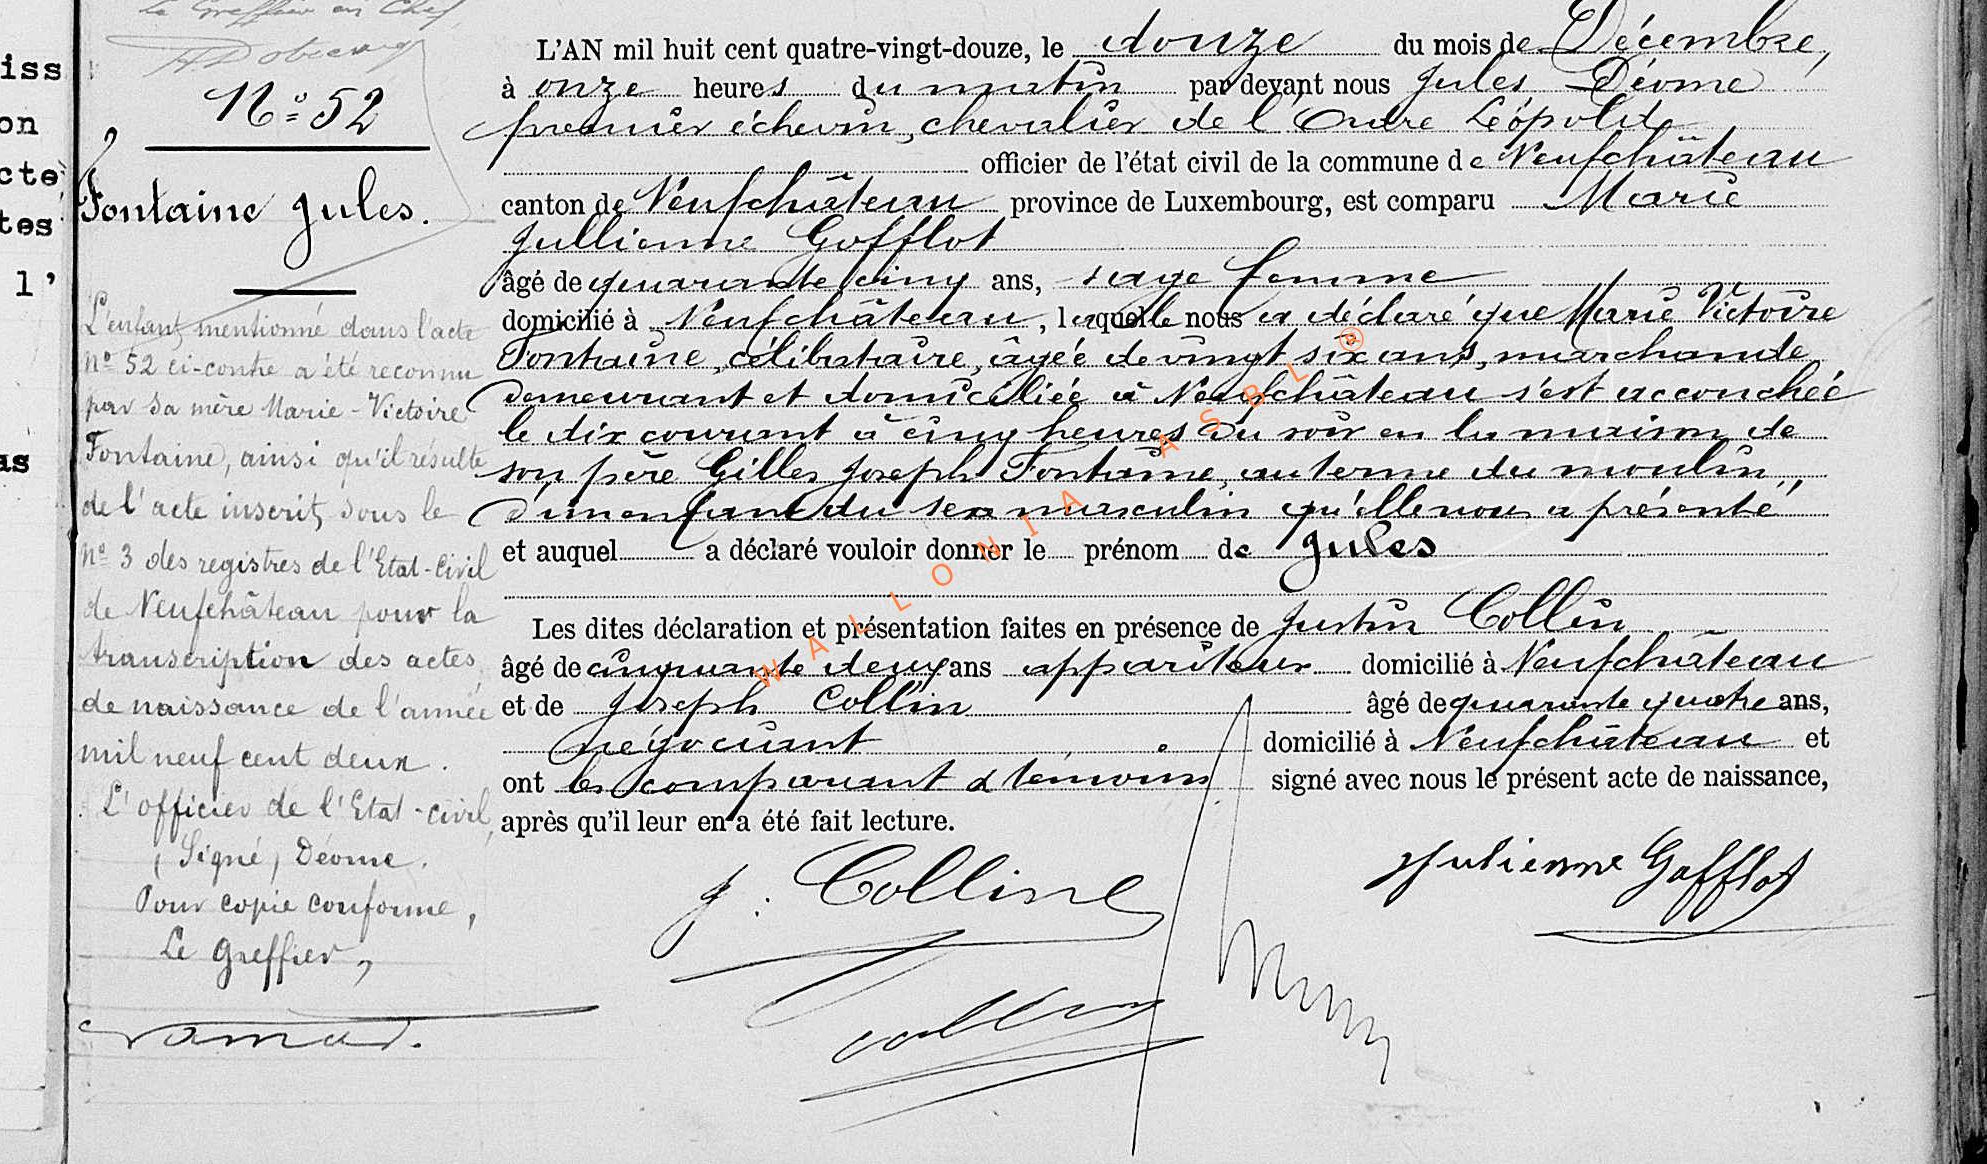 iss
on
cte
tes
l'
as
Le Greffier en Chef,
Nº 52
Fontaine Jules.
L'enfant mentionné dans l'acte
Nº 52 ci-contre a été reconnu
par sa mère Marie-Victoire
Fontaine, ainsi qu'il résulte
de l'acte inscrit, sous le
Nº 3 des registres de l'Etat-Civil
de Neufchâteau pour la
transcription des actes
de naissance de l'année
mil neuf cent deux.
L'officier de l'Etat-civil,
(Signé) Déome.
Pour copie conforme,
Le Greffier,
L'AN mil huit cent quatre-vingt-douze, le douze du mois de Décembre,
à onze heures du matin par devant nous Jules Déome
premier échevin, chevalier de l'Ordre Léopold
officier de l'état civil de la commune de Neufchâteau
canton de Neufchâteau province de Luxembourg, est comparu Marie
Jullienne Gofflot
âgé de quarante cinq ans, sage femme
domicilié à Neufchâteau, laquelle nous a déclaré que Marie Victoire
Fontaine, célibataire, âgée de vingt six ans, marchande
demeurant et domiciliée à Neufchâteau s'est accouchée
le dix courant à cinq heures du soir en la maison de
son père Gilles Joseph Fontaine, au terme du moulin,
d'un enfant du sexe masculin qu'elle nous a présenté
et auquel a déclaré vouloir donner le prénom de Jules
Les dites déclaration et présentation faites en présence de Justin Collin
âgé de cinquante deux ans appariteur domicilié à Neufchâteau
et de Joseph Collin âgé de quarante quatre ans,
négociant domicilié à Neufchâteau et
ont les comparant & témoins signé avec nous le présent acte de naissance,
après qu'il leur en a été fait lecture.
J. Colline
Julienne Gofflot
Collin
WALLONIA ASBL ®